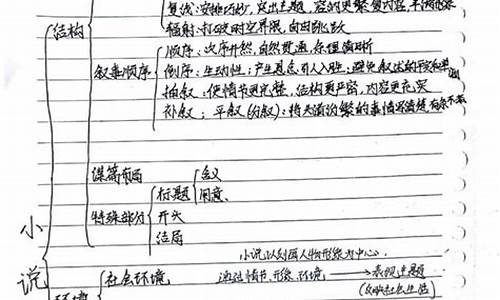 复线：安排巧妙，突出主题，容纳更繁复内容，丰满
辐射：打破时空界限，自由跳跃
结构
叙事顺序
顺序：次序井然，自然贯通，条理清晰
倒序：生动性；产生悬念，引人入胜；避免叙述的平铺和单调
插叙：使情节更完整，结构更严密，内容更充实
补叙； 平叙(分叙)：将头绪纷繁的事情写清楚，有条不紊
谋篇布局
特殊部分
标题
含义
用意
开头
结局
小说
小说以刻画人物形象为中心，
社会环境
通过情节、形象、环境 → 表现主题
(反映社会生活)
环境